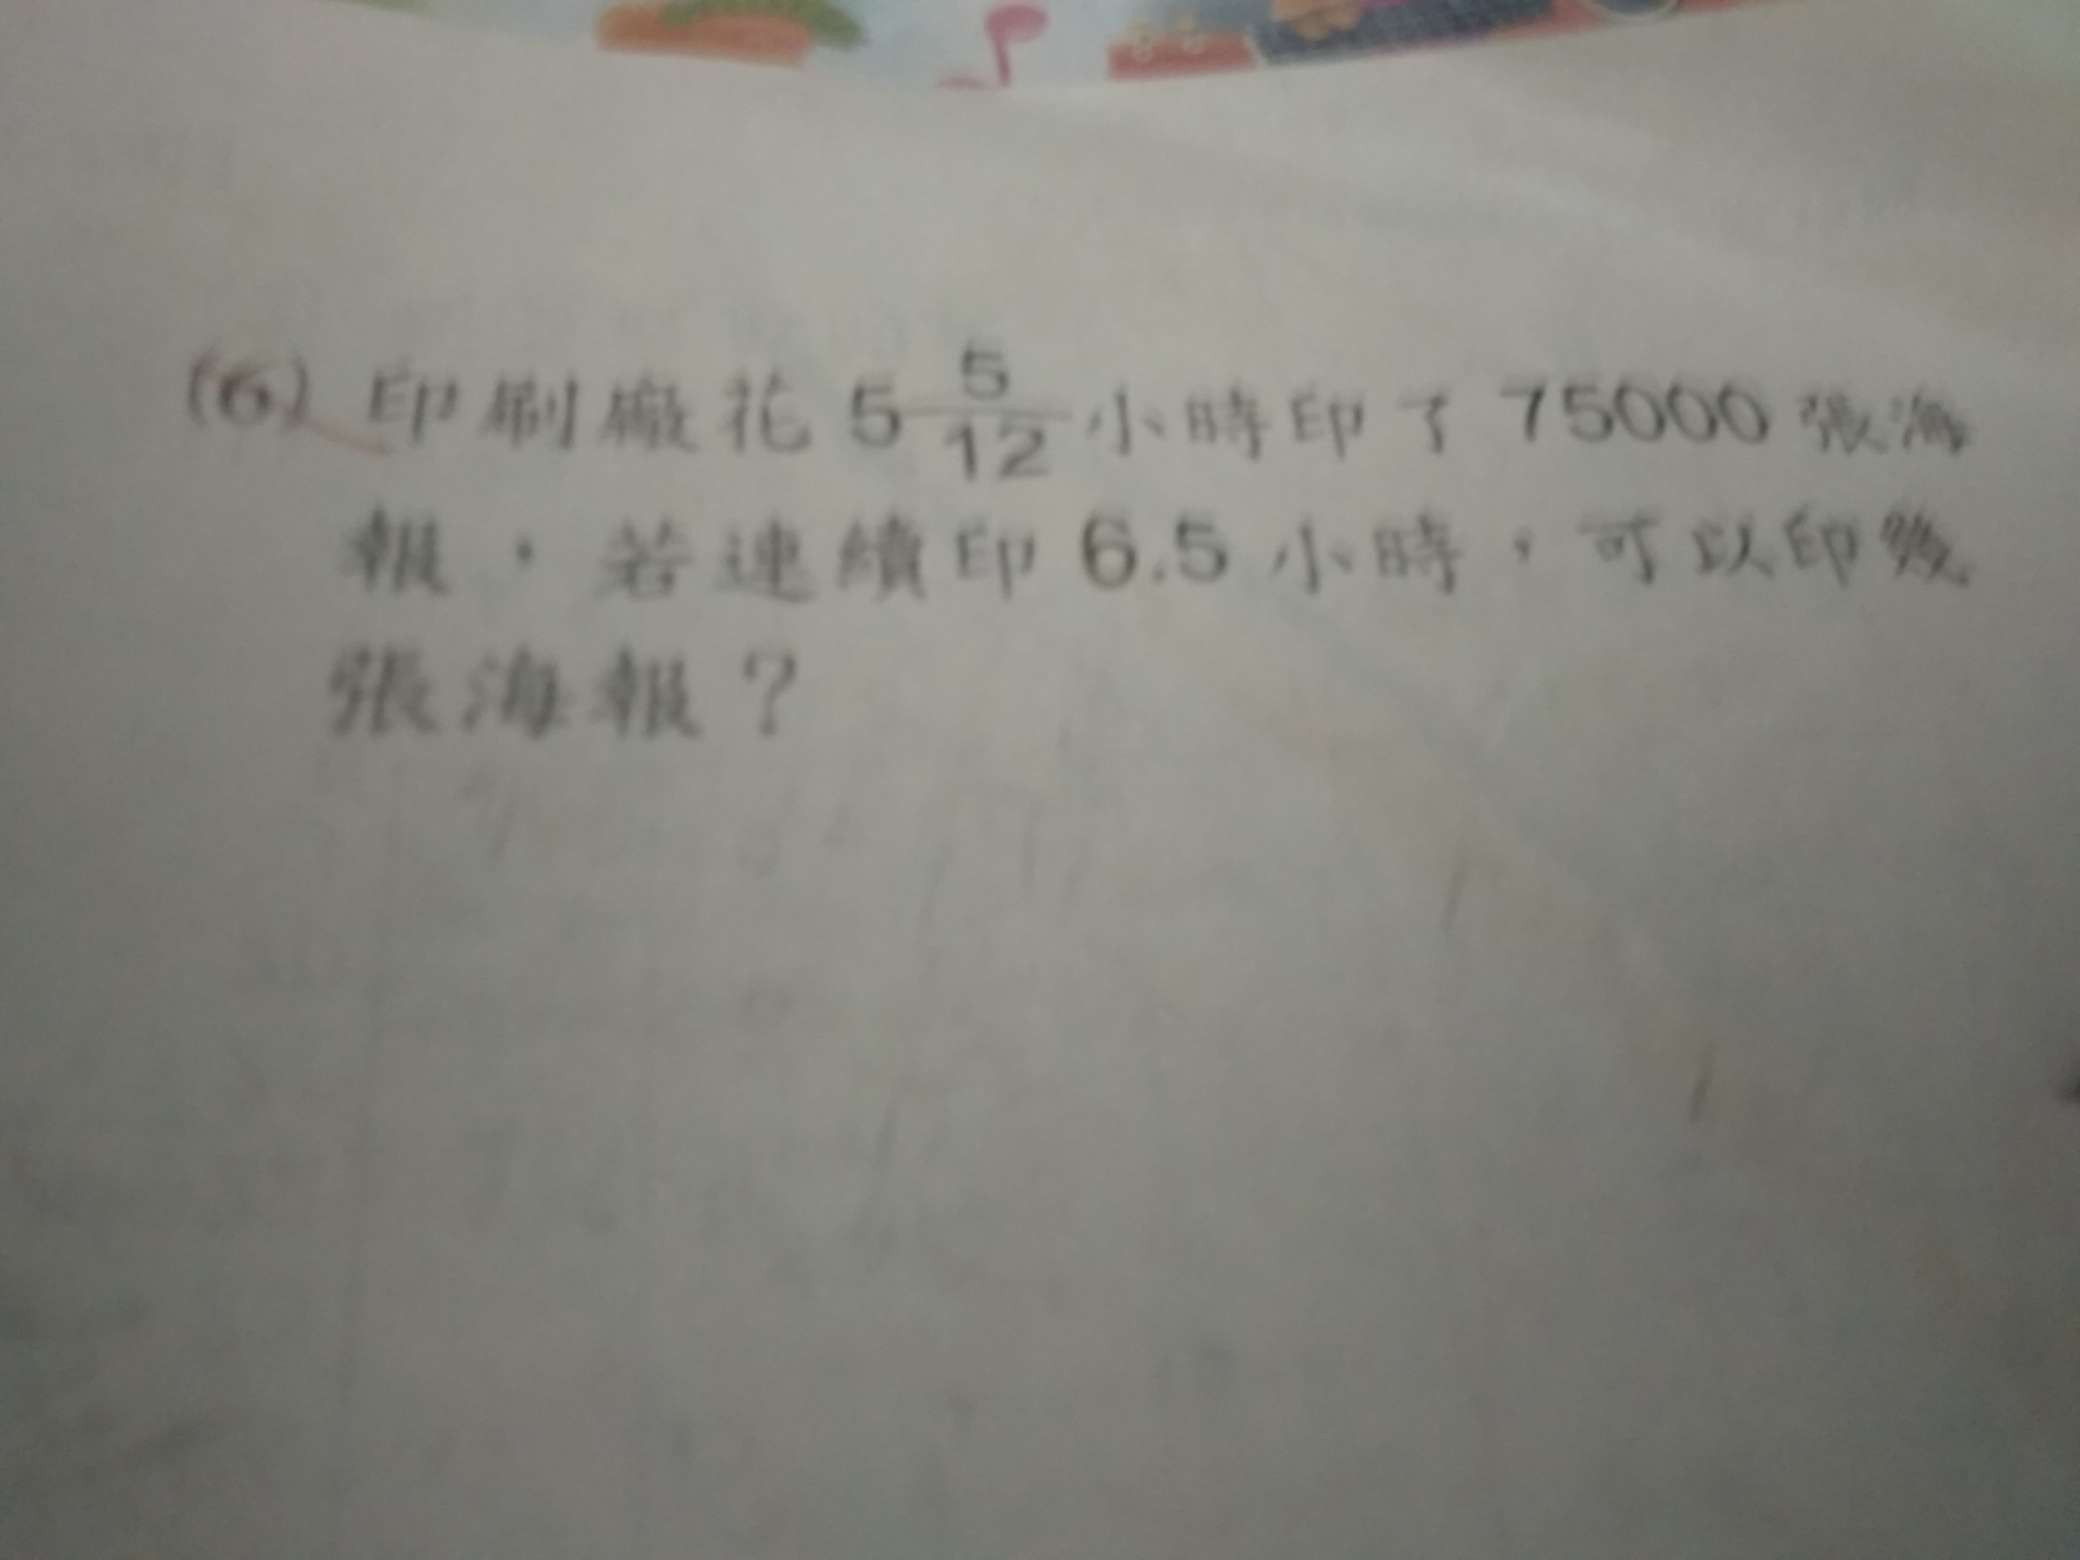 (6) 印刷廠花 5 5/12 小時印了 75000 張海
報，若連續印 6.5 小時，可以印幾
張海報？